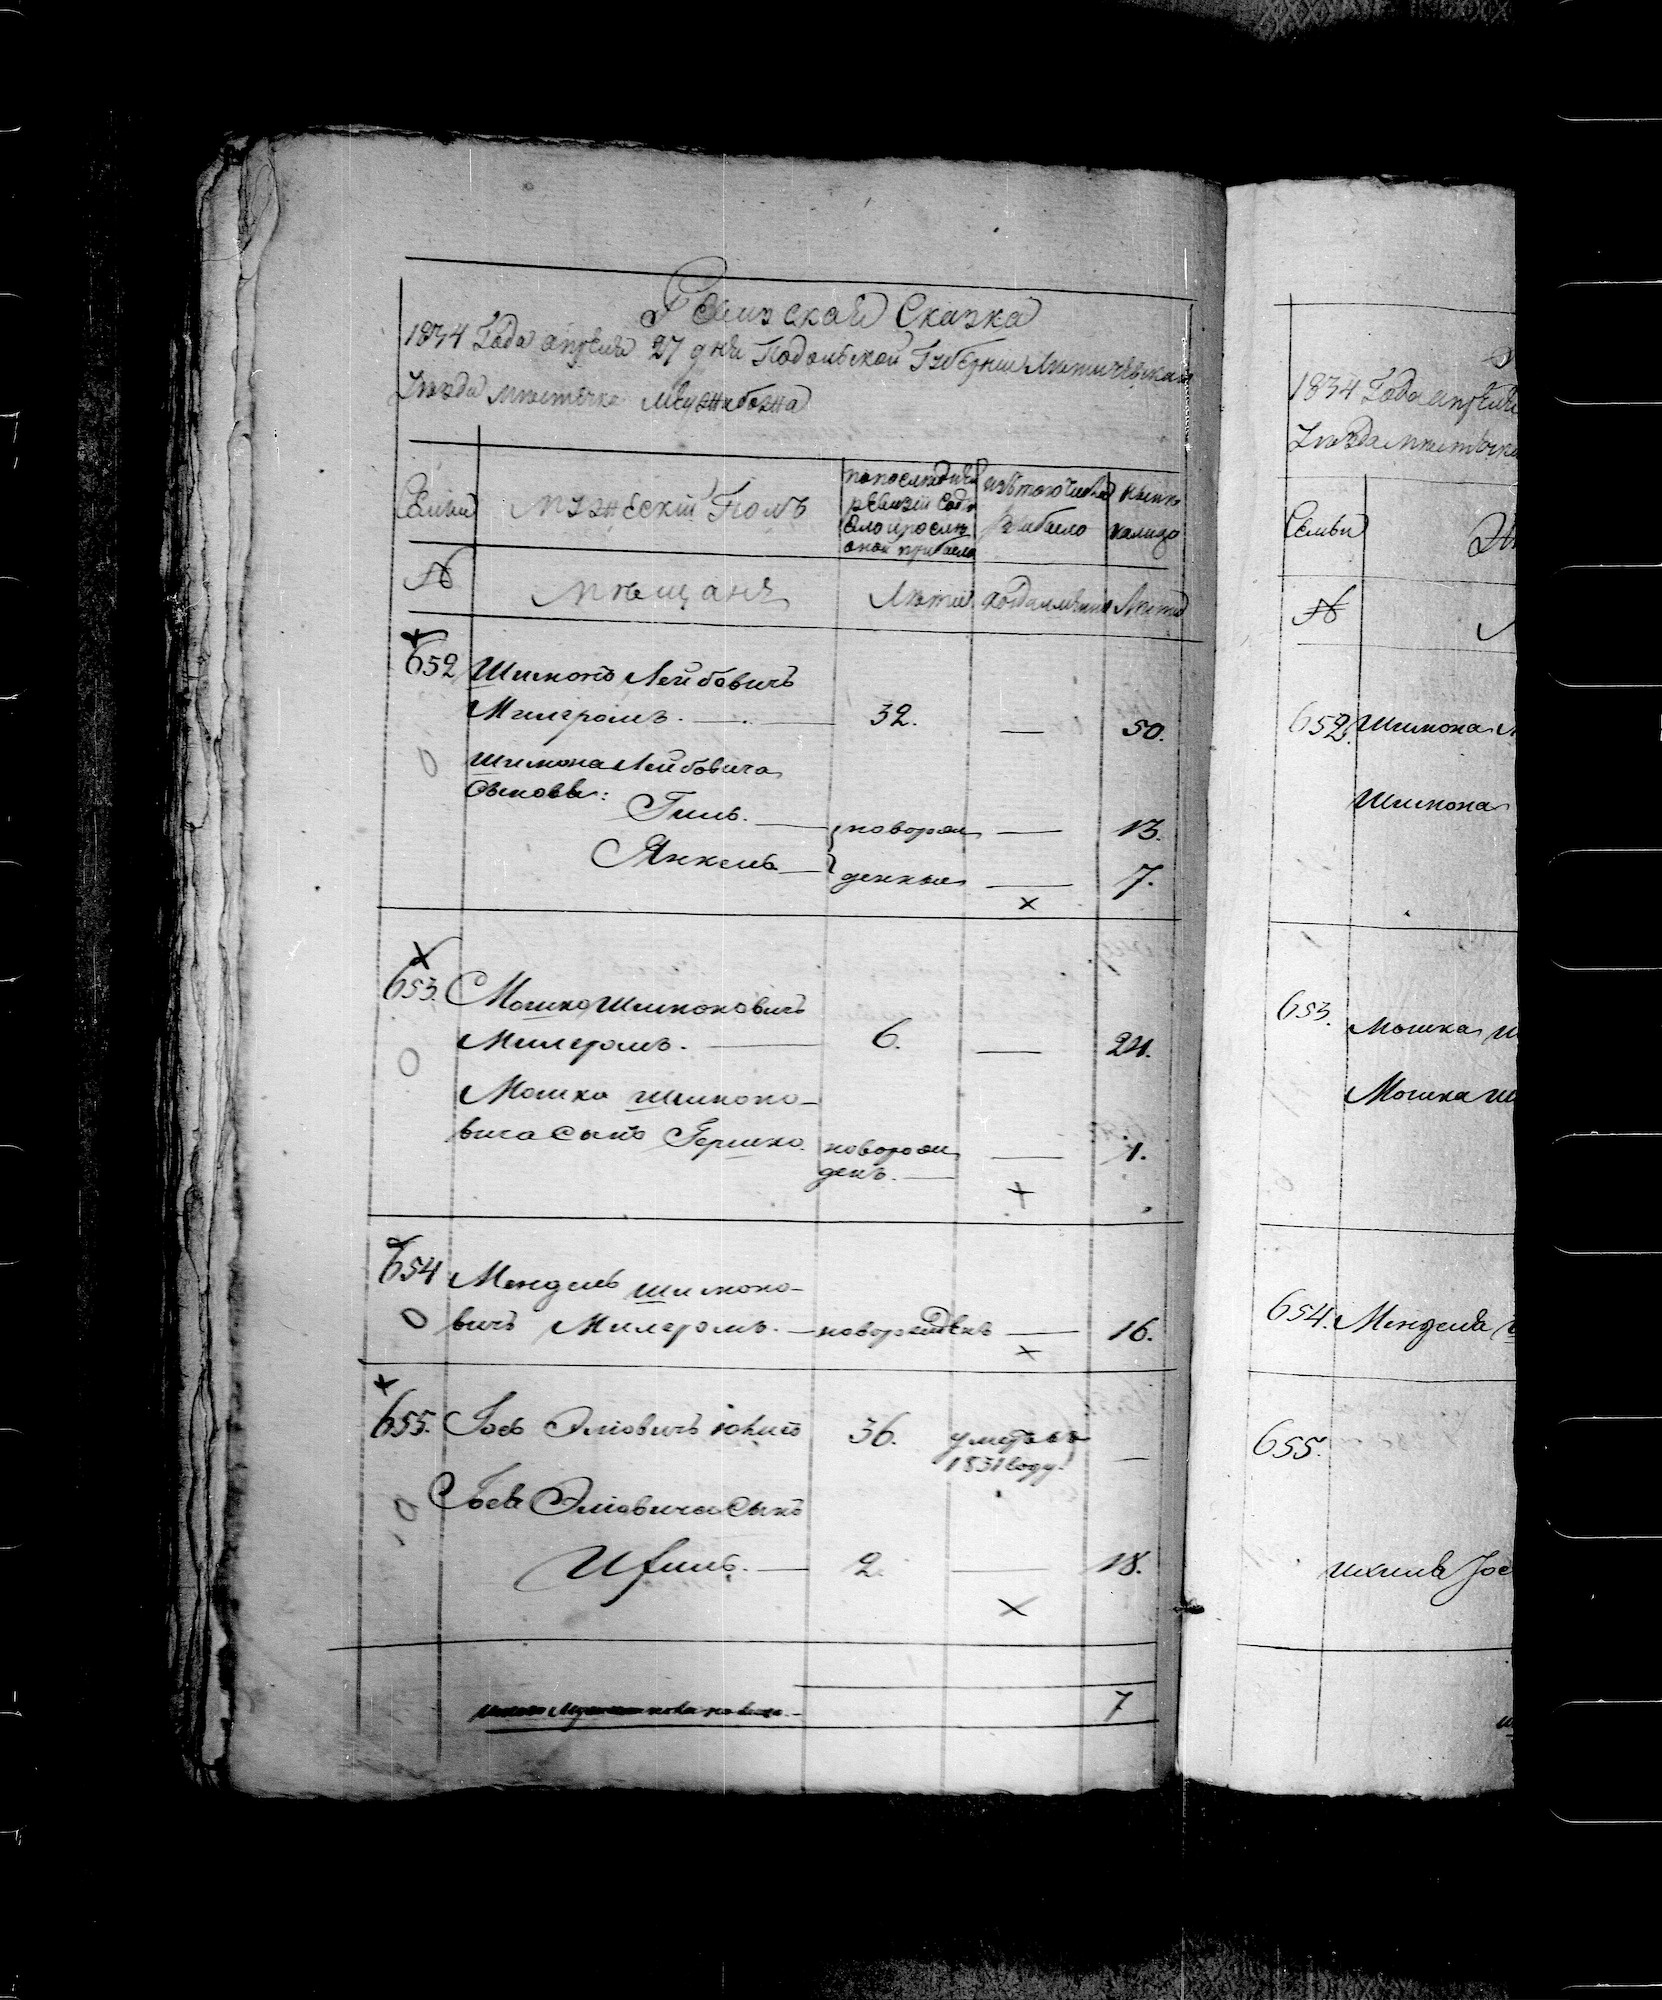 Ревизская Сказка
1834 Года апреля 27 дня Подольской Губернии Литичевскаго
Уезда местечка Меджибожа
Семьи
мужескій Полъ
по последней
ревизіи состо
яло и после
оной прибыло
изъ того числа
выбыло
ныне
налицо
№
мещане
Лета
когда именно
Лета
652 Шимонъ Лейбовичъ
Милгромъ. — 32. — 50.
Шимона Лейбовича
сыновья:
Гиль. — новорож — 13.
Янкель — денные — 7.
×
653. Мошко Шимоновичъ
Милгромъ. — 6. — 24.
Мошка Шимоно-
вича сынъ Гершко. новорож — 1.
денъ. —
×
654 Мендель Шимоно-
0 вичъ Милгромъ. — новорожденъ — 16.
×
655. Іось Эліовичъ 36. умеръ въ —
1831 году.
Іося Эліовича сынъ
Ихиль. — 2. — 18.
×
7
1834 Года апреля
Уезда местечка
Семьи
№
652. Шимона
Шимона
653. Мошка
Мошка
654. Менделя
655.
Ихиля Іос